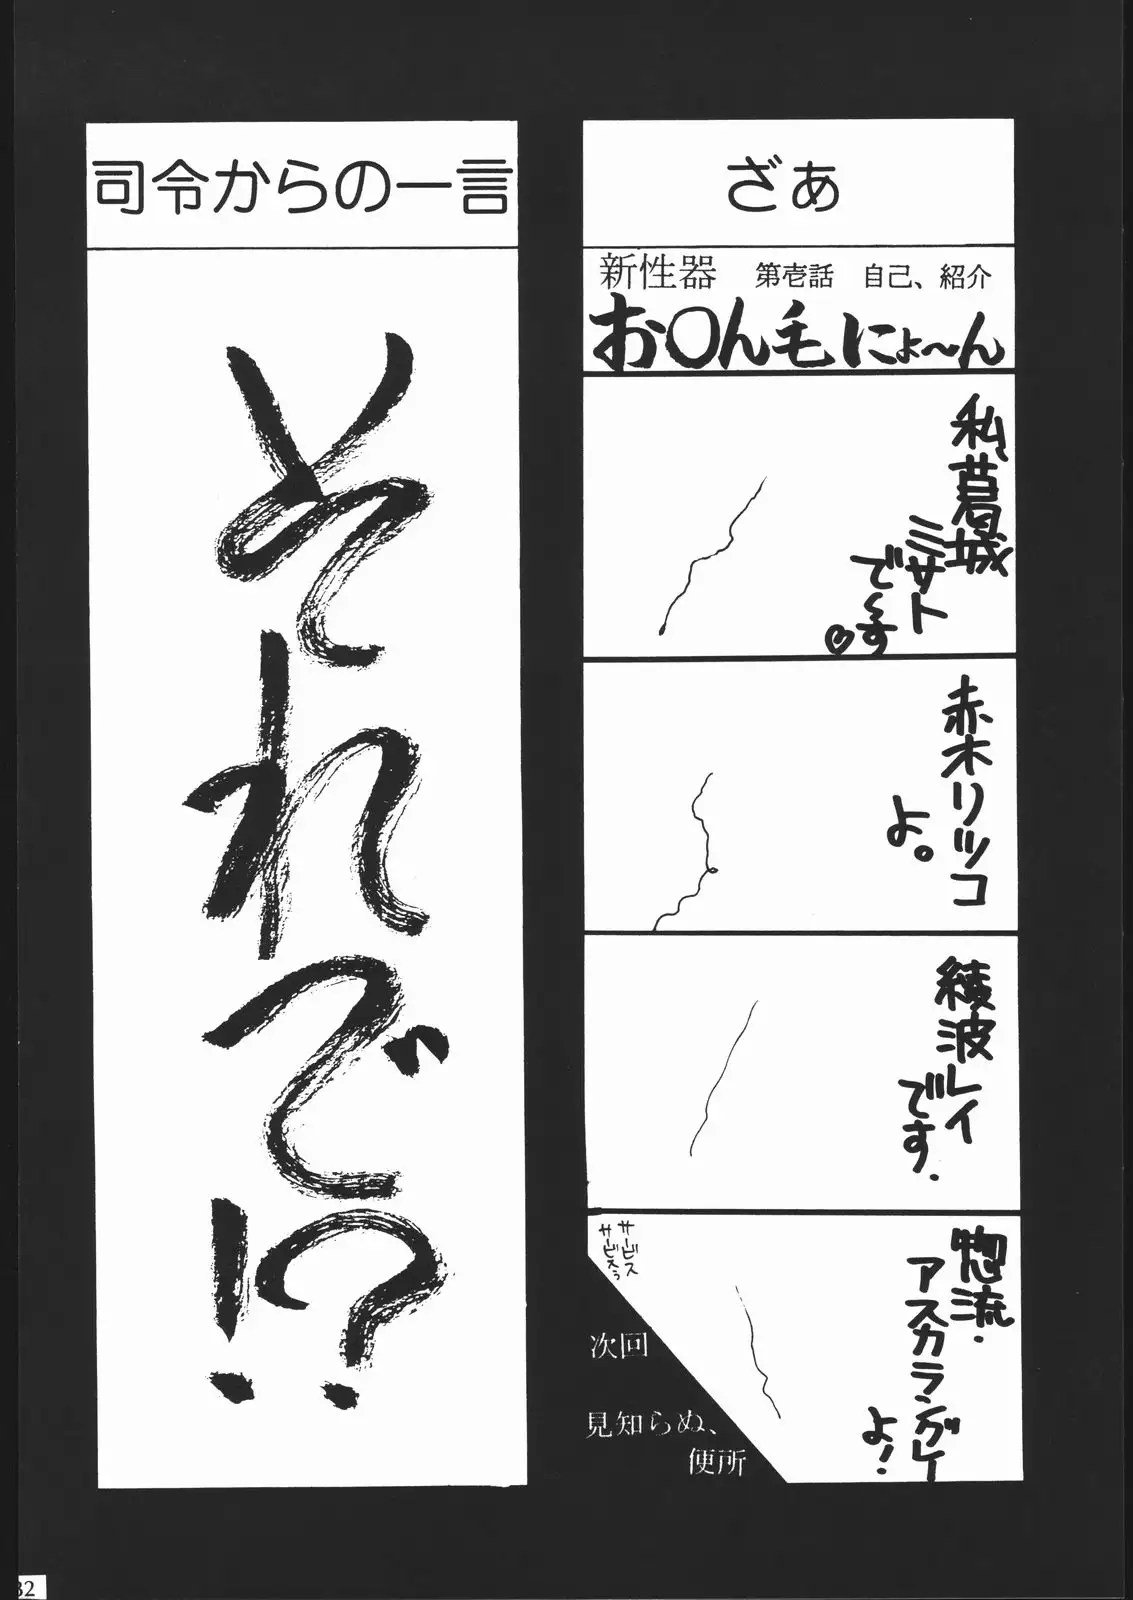 ざぁ
新性器　第壱話　自己、紹介
お〇ん毛にょ〜ん
私、葛城
ミサト
で〜す
赤木リツコ
よ。
綾波レイ
です.
惣流・
アスカラングレー
よ!
サービス
サービスぅ
次回
見知らぬ、
便所
司令からの一言
それで!?
32